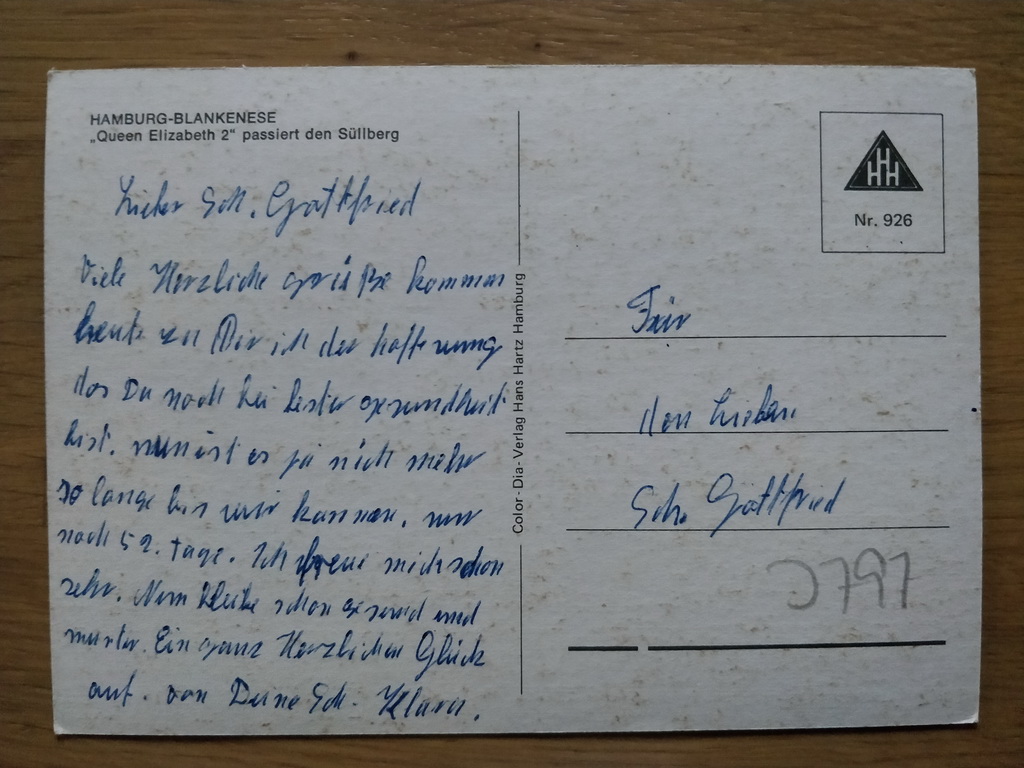 HAMBURG-BLANKENESE
„Queen Elizabeth 2“ passiert den Süllberg
Lieber Sch. Gottfried
Viele Herzliche grüße kommen
heute zu Dir ich der hoffnung
das Du noch bei bester gesundheit
bist. nun ist es ja nich mehr
so lange bis wir kommen. nur
noch 52. tage. Ich freue mich schon
sehr. Nun bleibe schon gesund und
munter. Ein ganz Herzlichen Glück
auf. von Deine Sch. Klara.
Color-Dia-Verlag Hans Hartz Hamburg
HHH
Nr. 926
Für
den Lieben.
Sch. Gottfried
J797